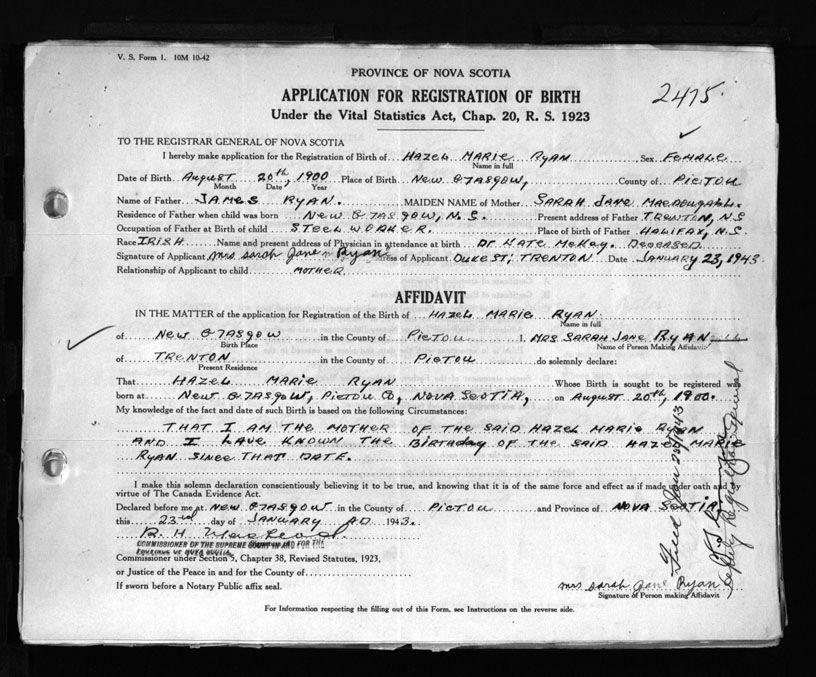 V. S. Form 1. 10M 10-42
PROVINCE OF NOVA SCOTIA
2475
APPLICATION FOR REGISTRATION OF BIRTH
Under the Vital Statistics Act, Chap. 20, R. S. 1923
TO THE REGISTRAR GENERAL OF NOVA SCOTIA
I hereby make application for the Registration of Birth of HAZEL MARIE RYAN, Sex FEMALE
Name in full
Date of Birth AUGUST 20th, 1900 Place of Birth NEW GLASGOW, County of PICTOU
Month Date Year
Name of Father JAMES RYAN. MAIDEN NAME of Mother SARAH JANE MACDOUGALL.
Residence of Father when child was born NEW GLASGOW, N.S. Present address of Father TRENTON, N.S
Occupation of Father at Birth of child STEEL WORKER. Place of birth of Father HALIFAX, N.S.
Race IRISH Name and present address of Physician in attendance at birth Dr McKay. DECEASED
Signature of Applicant Mrs Sarah Jane Ryan Address of Applicant DUKE ST; TRENTON Date JANUARY 23, 1943
Relationship of Applicant to child MOTHER
AFFIDAVIT
IN THE MATTER of the application for Registration of the Birth of HAZEL MARIE RYAN.
Name in full
of NEW GLASGOW in the County of PICTOU I, MRS SARAH JANE RYAN
Birth Place Name of Person Making Affidavit
of TRENTON in the County of PICTOU do solemnly declare:
Present Residence
That HAZEL MARIE RYAN Whose Birth is sought to be registered was
born at NEW GLASGOW, PICTOU CO, NOVA SCOTIA, on AUGUST 20th, 1900.
My knowledge of the fact and date of such Birth is based on the following Circumstances:
THAT I AM THE MOTHER OF THE SAID HAZEL MARIE RYAN
AND I HAVE KNOWN THE BIRTHDAY OF THE SAID HAZEL MARIE
RYAN SINCE THAT DATE.
I make this solemn declaration conscientiously believing it to be true, and knowing that it is of the same force and effect as if made under oath and by
virtue of The Canada Evidence Act.
Declared before me at NEW GLASGOW in the County of PICTOU and Province of NOVA SCOTIA
this 23rd day of JANUARY A.D. 1943.
R. H.
COMMISSIONER OF THE SUPREME COURT IN AND FOR THE
PROVINCE OF NOVA SCOTIA
Commissioner under Section 5, Chapter 38, Revised Statutes, 1923,
or Justice of the Peace in and for the County of
If sworn before a Notary Public affix seal.
Mrs Sarah Jane Ryan
Signature of Person making Affidavit
For Information respecting the filling out of this Form, see Instructions on the reverse side.
Filed Jan 25/1943
Deputy Registrar General